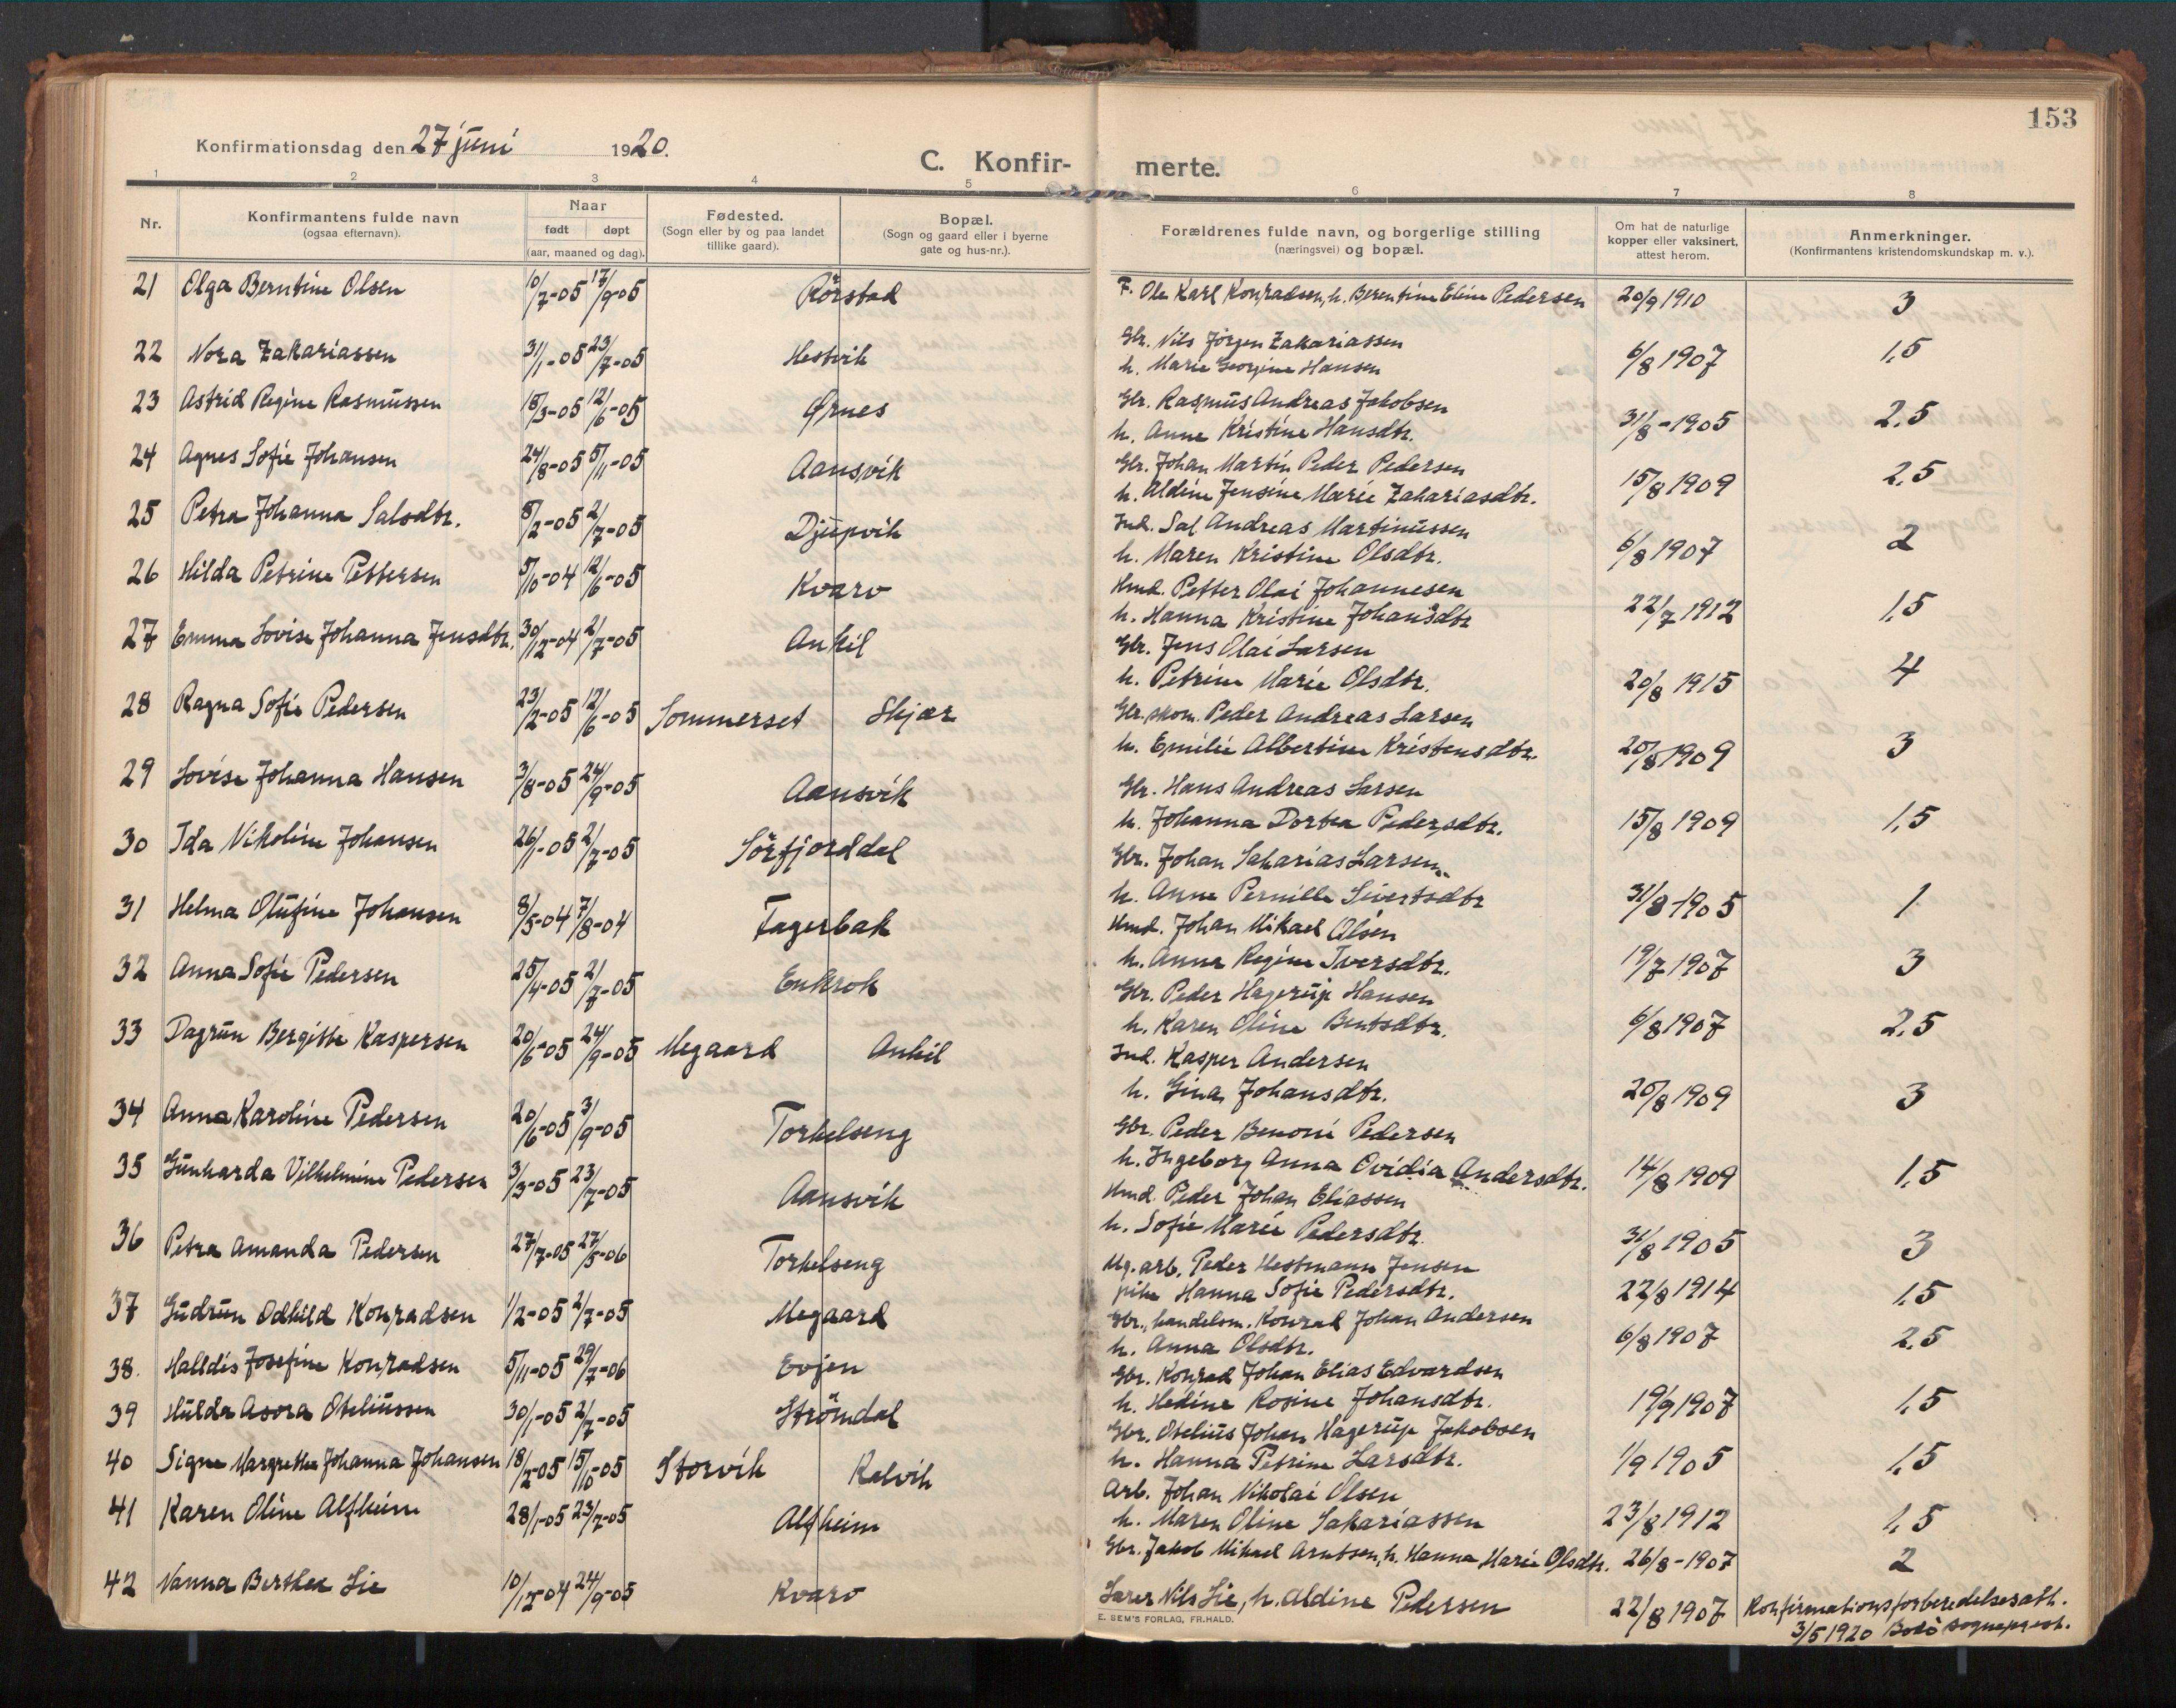 153
Konfirmationsdag den 27 juni 1920.
C. Konfir- merte.
1 2 3 4 5 6 7 8
Nr.
Konfirmantens fulde navn
(ogsaa efternavn).
Naar
født døpt
(aar, maaned og dag).
Fødested.
(Sogn eller by og paa landet
tillike gaard).
Bopæl.
(Sogn og gaard eller i byerne
gate og hus-nr.).
Forældrenes fulde navn, og borgerlige stilling
(næringsvei) og bopæl.
Om hat de naturlige
kopper eller vaksinert,
attest herom.
Anmerkninger.
(Konfirmantens kristendomskundskap m. v.).
21 Olga Berntine Olsen 10/7-05 17/9-05 Rörstad F. Ole Karl Konradsen, h. Berentine Eline Pedersen 20/9 1910 3
22 Nora Zakariassen 31/1-05 23/7-05 Hestvik Gbr. Nils Jörgen Zakariassen
h. Marie Georgine Hansen 6/8 1907 1,5
23 Astrid Regine Rasmussen 18/3-05 12/6-05 Ørnes Gbr. Rasmus Andreas Jakobsen
h. Anne Kristine Hansdtr. 31/8-1905 2,5
24 Agnes Sofie Johansen 24/8-05 5/11-05 Aansvik Gbr. Johan Martin Peder Pedersen
h. Aldine Jensine Marie Zakariasdtr. 15/8 1909 2,5
25 Petra Johanna Salsdtr. 8/2-05 2/7-05 Djupvik Ind. Sal Andreas Martinussen
h. Maren Kristine Olsdtr. 6/8 1907 2
26 Hilda Petrine Pettersen 5/10-04 12/6-05 Kvarv Hmd. Petter Olai Johannesen
h. Hanna Kristine Johansdtr 22/7 1912 1,5
27 Emma Lovise Johanna Jensdtr. 30/12-04 2/7-05 Ankil Gbr. Jens Olai Larsen
h. Petrine Marie Olsdtr. 20/8 1915 4
28 Ragna Sofie Pedersen 23/2-05 12/6-05 Sommerset Skjær Gbr. skom. Peder Andreas Larsen
h. Emilie Albertine Kristensdtr. 20/8 1909 3
29 Lovise Johanna Hansen 3/8-05 24/9-05 Aansvik Gbr. Hans Andreas Larsen
h. Johanna Dortea Pedersdtr. 15/8 1909 1,5
30 Ida Nikoline Johansen 26/1-05 2/7-05 Sörfjorddal Gbr. Johan Sakarias Larsen
h. Anne Pernille Sivertsdtr 31/8-1905 1
31 Helma Olufine Johansen 8/5-04 7/8-04 Fagerbak Hmd. Johan Mikael Olsen
h. Anna Regine Iversdtr. 19/7 1907 3
32 Anna Sofie Pedersen 25/4-05 2/7-05 Enkrok Gbr. Peder Hagerup Hansen
h. Karen Oline Bentsdtr. 6/8 1907 2,5
33 Dagrun Bergitte Kaspersen 20/6-05 24/9-05 Megaard Ankil Ind. Kasper Andersen
h. Gina Johansdtr. 20/8 1909 3
34 Anna Karoline Pedersen 20/6-05 3/9-05 Torkelseng Gbr. Peder Benoni Pedersen
h. Ingeborg Anna Ovidia Andersdtr. 14/8 1909 1,5
35 Gunharda Vilhelmine Pedersen 3/3-05 23/7-05 Aansvik Hmd. Peder Johan Eliassen
h. Sofie Marie Pedersdtr. 31/8 1905 3
36 Petra Amanda Pedersen 27/7-05 27/5-06 Torkelseng Ug. arb. Peder Hestmann Jensen
pike Hanna Sofie Pedersdtr. 22/8 1914 1,5
37 Gudrun Odhild Konradsen 1/2-05 2/7-05 Megaard Gbr., handelsm. Konrad Johan Andersen
h. Anna Olsdtr. 6/8 1907 2,5
38. Halldis Josefine Konradsen 5/11-05 29/7-06 Evjen Gbr. Konrad Johan Elias Edvardsen
h. Hedine Rosine Johansdtr. 19/9 1907 1,5
39 Hulda Asora Oteliussen 30/1-05 2/7-05 Strömdal Gbr. Otelius Johan Hagerup Jakobsen
h. Hanna Petrine Larsdtr. 1/9 1905 1,5
40 Signe Margrethe Johanna Johansen 18/2-05 15/10-05 Storvik Kalvik Arb. Johan Nikolai Olsen
h. Maren Oline Sakariassen 23/8 1912 1,5
41 Karen Oline Alfheim 28/1-05 23/7-05 Alfheim Gbr. Jakob Mikael Arntsen, h. Hanna Marie Olsdtr. 26/8-1907 2
42 Nanna Berthea Lie 10/12-04 24/9-05 Kvarv Lærer Nils Lie, h. Aldine Pedersen 22/8 1907 Konfirmationsforberedelsesatt.
3/5 1920 Bodö sogneprest.
E. SEM'S FORLAG, FR.HALD.